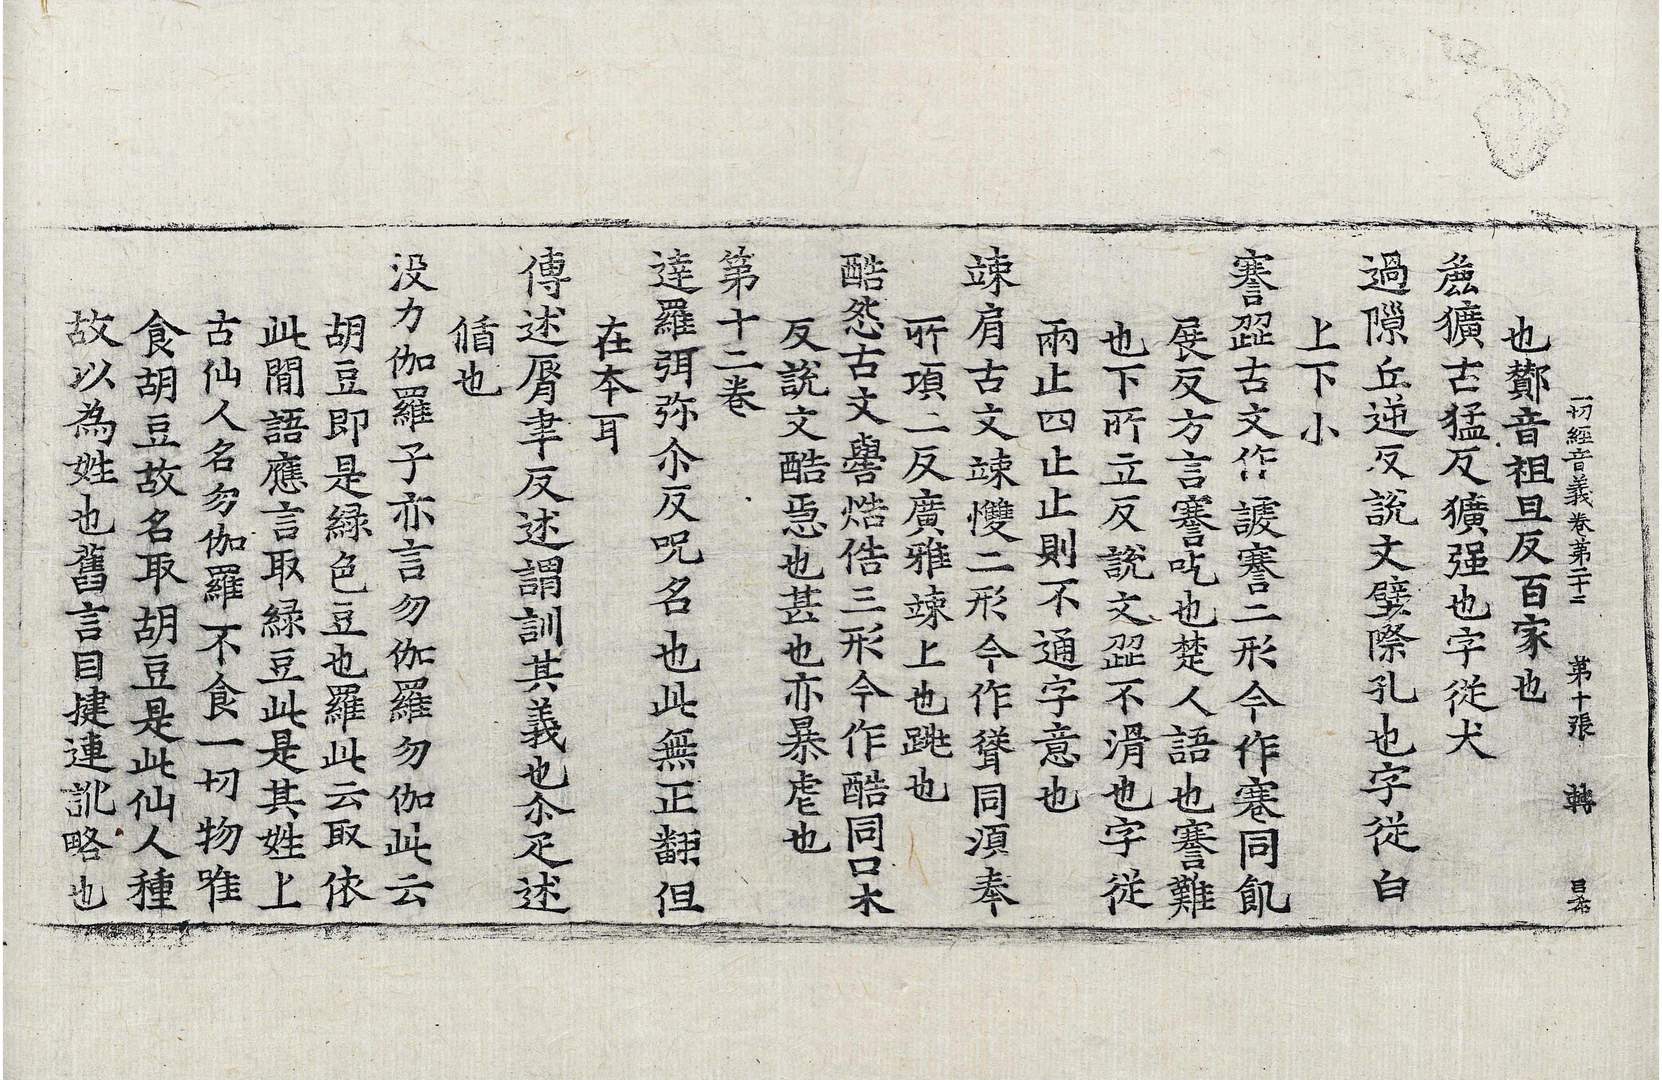 一切經音義卷第二十二 第十張 轉 昌希
也酇音祖旦反百家也
麁獷古猛反獷强也字從犬
過隙丘逆反說文壁際孔也字從白
上下小
謇澀古文作謇二形今作蹇同飢
展反方言謇吃也楚人語也謇難
也下所立反說文澀不滑也字從
兩止四止止則不通字意也
竦肩古文竦㩳二形今作聳同湏奉
所項二反廣雅竦上也跳也
酷怨古文嚳焅俈三形今作酷同口木
反說文酷惡也甚也亦暴虐也
第十二卷
達羅弭弥尒反呪名也此無正翻但
在本耳
傳述脣聿反述謂訓其義也尒疋述
循也
没力伽羅子亦言勿伽羅勿伽此云
胡豆即是緑色豆也羅此云取依
此間語應言取緑豆此是其姓上
古仙人名勿伽羅不食一切物唯
食胡豆故名取胡豆是此仙人種
故以為姓也舊言目揵連訛略也